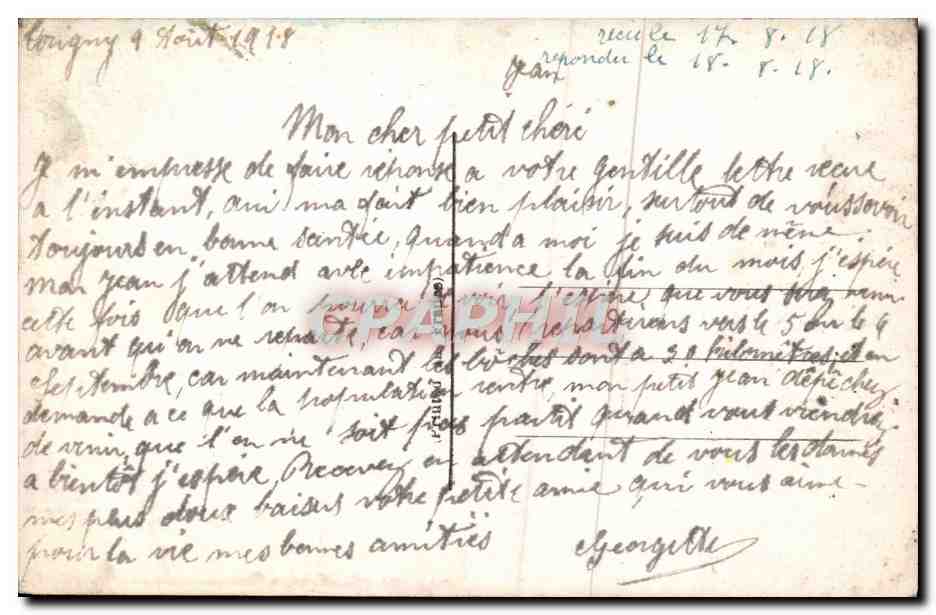 Torigny 9 Août 1918
recu le 17. 8. 18
repondu le 18. 8. 18.
Jean
Mon cher petit chéri
Je m'empresse de faire réponse a votre gentille lettre recue
a l'instant, qui ma fait bien plaisir, surtout de vous savoir
toujours en bonne santée, quand a moi je suis de même.
mon Jean j'attend avec impatience la fin du mois j'espère
cette fois que l'on pourra j'espère que vous
avant qu'on ne reparte, car nous repartirons vers le 5 ou le 6
Septembre, car maintenant les bôches sont a 30 kilomètres et on
demande a ce que la population rentre, mon petit Jean dépêchez
de venir, que l'on ne soit pas partit quand vous viendrez
a bientôt j'espère, Recevez en attendant de vous les donnés
mes plus doux baisers votre petite amie qui vous aime
pour la vie mes bonnes amitiés
Georgette
CPAPHIL